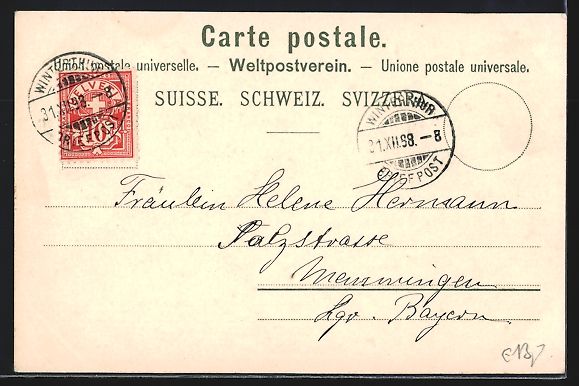 Carte postale.
Union postale universelle. — Weltpostverein. — Unione postale universale.
SUISSE. SCHWEIZ. SVIZZERA.
WINTERTHUR
31.XII.98. 8
BRIEFPOST
HELVETIA
10
WINTERTHUR
31.XII.98. – 8
BRIEFPOST
Fräulein Helene Hermann
Salzstrasse
Memmingen
Kgr. Bayern